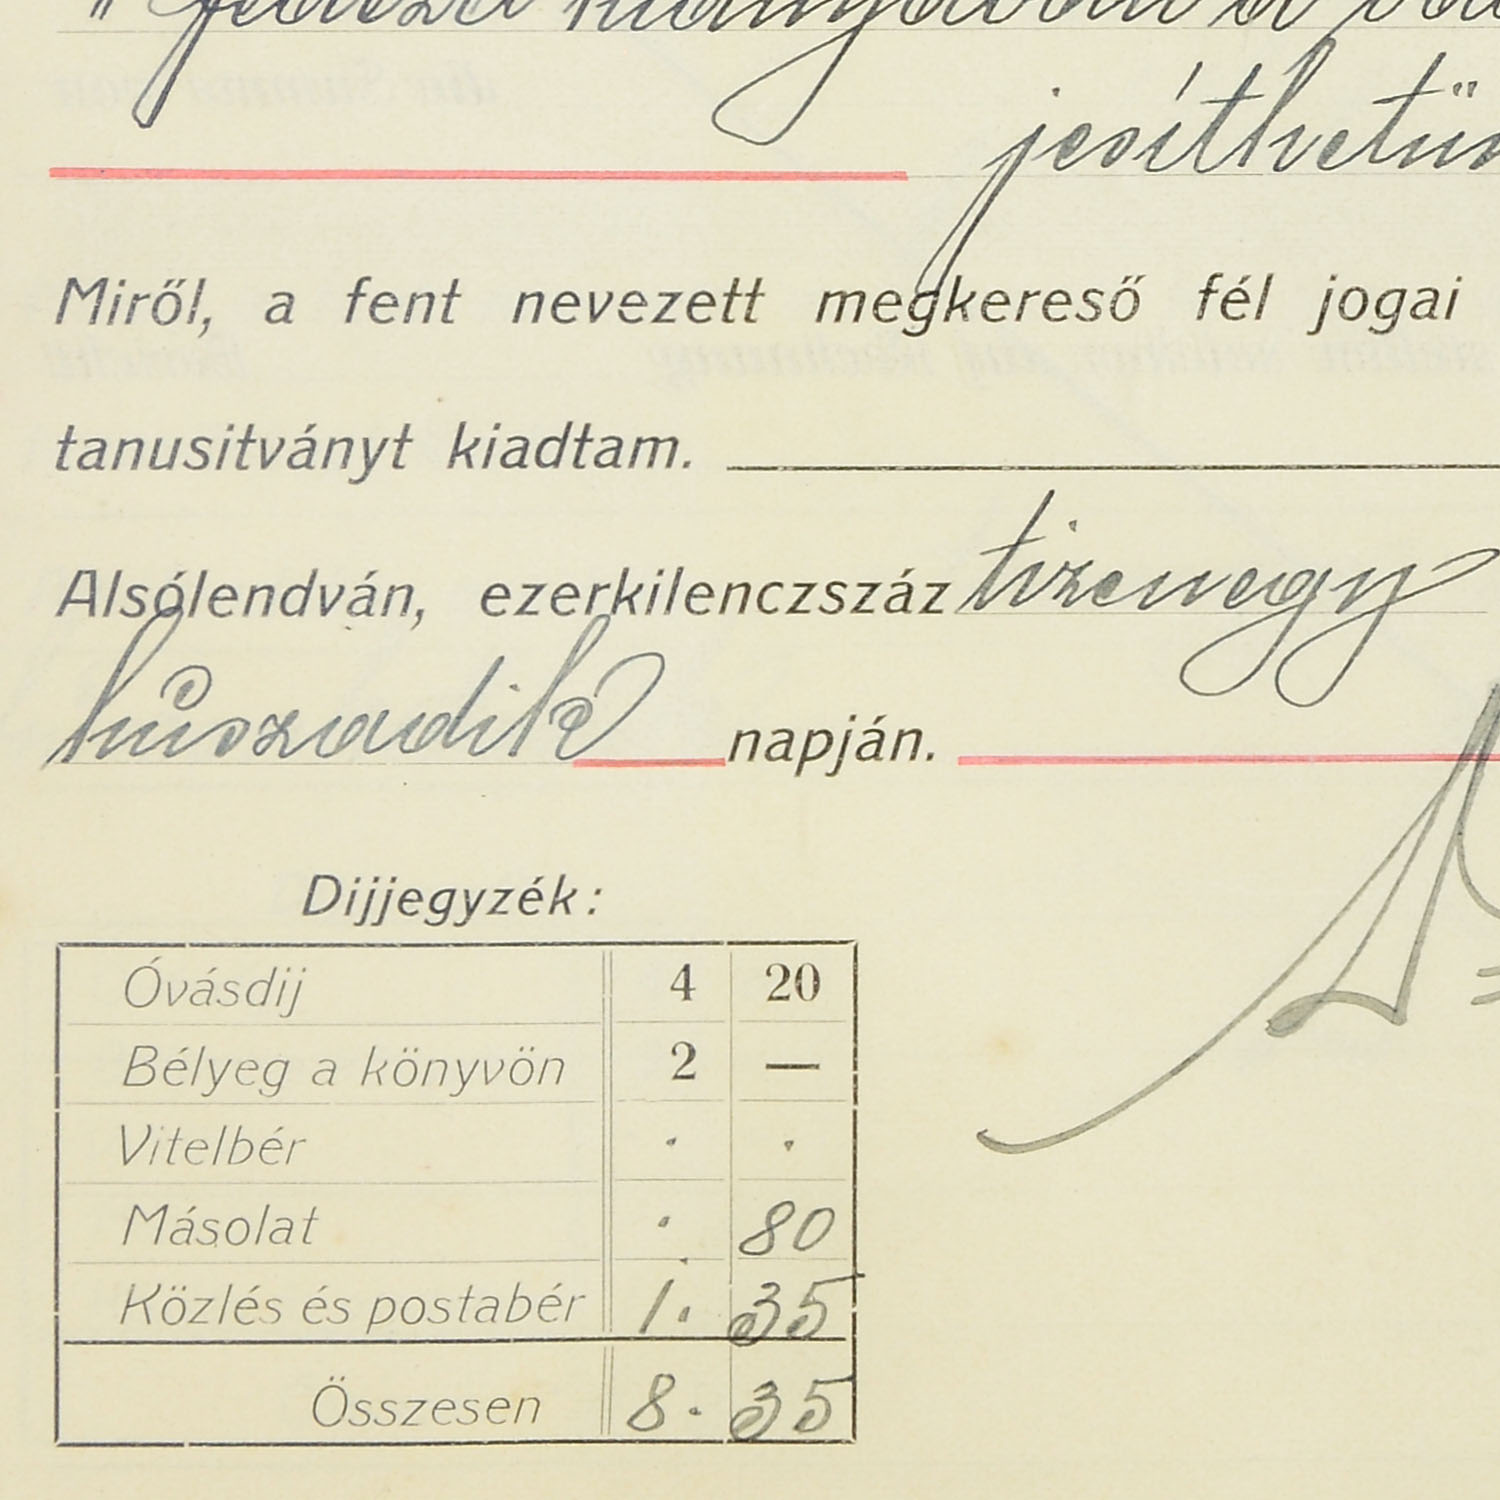 " fedezet hiányában a
jesíthetün
Miről, a fent nevezett megkereső fél jogai
tanusitványt kiadtam.
Alsólendván, ezerkilenczszáz tizenegy
húszadik napján.
Dijjegyzék:
Óvásdij 4 20
Bélyeg a könyvön 2 —
Vitelbér · ·
Másolat · 80
Közlés és postabér 1. 35
Összesen 8. 35